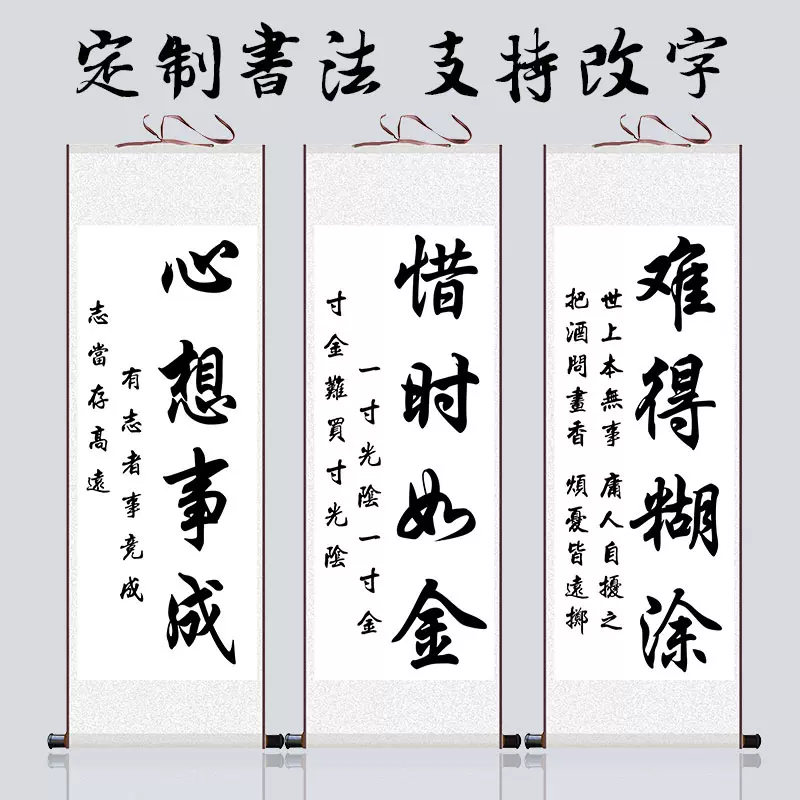 定制書法 支持改字
难得糊涂
世上本無事 庸人自擾之
把酒問畫香 煩憂皆遠擲
惜时如金
一寸光陰一寸金
寸金難買寸光陰
心想事成
有志者事竟成
志當存高遠